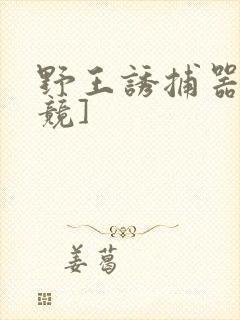 野王誘捕器
競]
姜葛